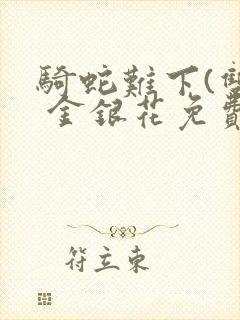 騎蛇難下(雙
金銀花免費
符立東